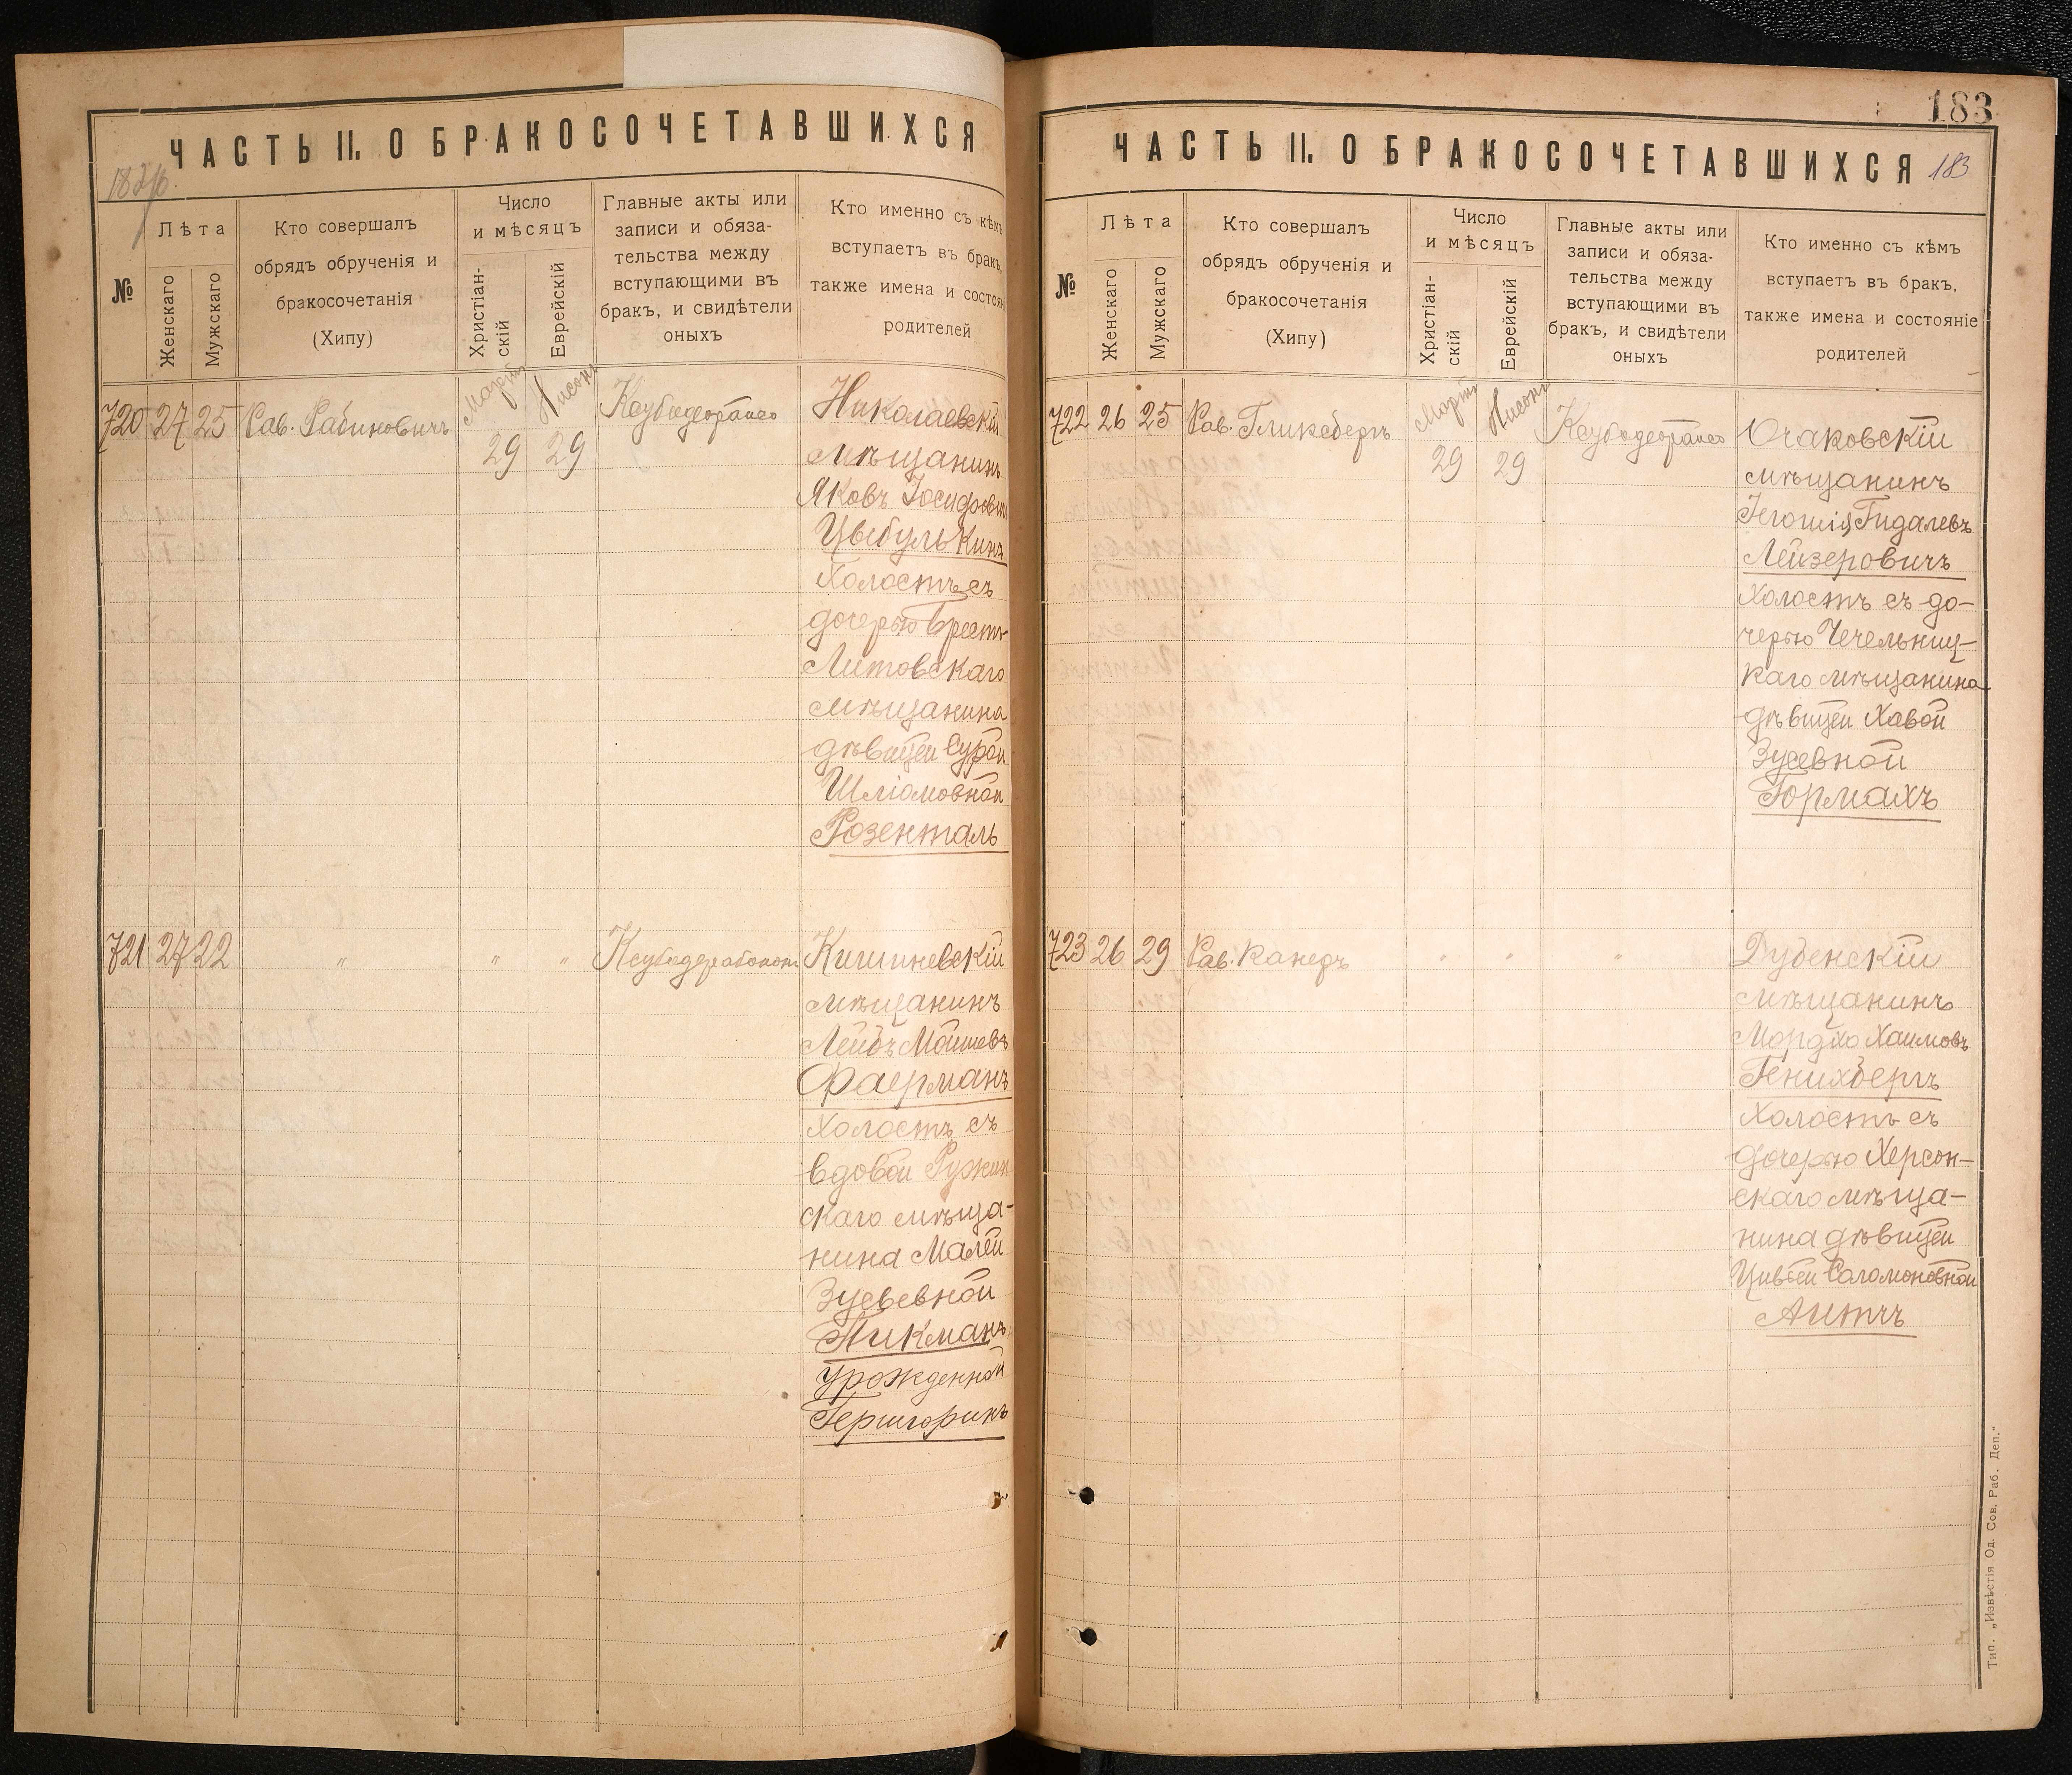 ЧАСТЬ II. О БРАКОСОЧЕТАВШИХСЯ
№
Лѣта
Женскаго
Мужскаго
Кто совершалъ
обрядъ обрученія и
бракосочетанія
(Хипу)
Число
и мѣсяцъ
Христіан-
скій
Еврейскій
Главные акты или
записи и обяза-
тельства между
вступающими въ
бракъ, и свидѣтели
оныхъ
Кто именно съ кѣмъ
вступаетъ въ бракъ,
также имена и состоян
родителей
720 27 25 Рав. Рабиновичъ
Мартъ Нисонъ
29 29
Николаевскій
мѣщанинъ
Яковъ Іосифовъ
Цыбулькинъ
холостъ съ
дочерью Брестъ-
Литовскаго
мѣщанина
дѣвицей Сурой
Шліомовной
Розенталь
721 27 22 " " "
Кишиневскій
мѣщанинъ
Лейбъ Мойшевъ
Фаерманъ
холостъ съ
вдовой Ружин
скаго мѣща-
нина Малей
Зусьевной
Пикманъ
урожденной
Гершгоринъ
183
ЧАСТЬ II. О БРАКОСОЧЕТАВШИХСЯ 183
№
Лѣта
Женскаго
Мужскаго
Кто совершалъ
обрядъ обрученія и
бракосочетанія
(Хипу)
Число
и мѣсяцъ
Христіан-
скій
Еврейскій
Главные акты или
записи и обяза-
тельства между
вступающими въ
бракъ, и свидѣтели
оныхъ
Кто именно съ кѣмъ
вступаетъ въ бракъ,
также имена и состояніе
родителей
722 26 25 Рав. Гликсбергъ
Мартъ Нисонъ
29 29
Очаковскій
мѣщанинъ
Іегошія Гидалевъ
Лейзеровичъ
холостъ съ до-
черью Чечельниц-
каго мѣщанина
дѣвицей Хавой
Зусевной
Гормахъ
723 26 29 Рав. Канеръ " " "
Дубенскій
мѣщанинъ
Мордхо Хаимовъ
Генихбергъ
холостъ съ
дочерью Херсон-
скаго мѣща-
нина дѣвицей
Цивьей Саломоновной
Тип. „Извѣстія Од. Сов. Раб. Деп."